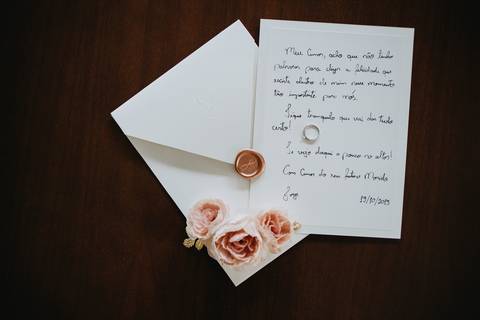 Meu Amor, acho que não tenho
palavras para dizer a felicidade que
existe dentro de mim nesse momento
tão importante para nós.
Fique tranquilo que vai dar tudo
certo!
Te vejo daqui a pouco no altar!
Com Amor do seu futuro Marido
19/10/2019